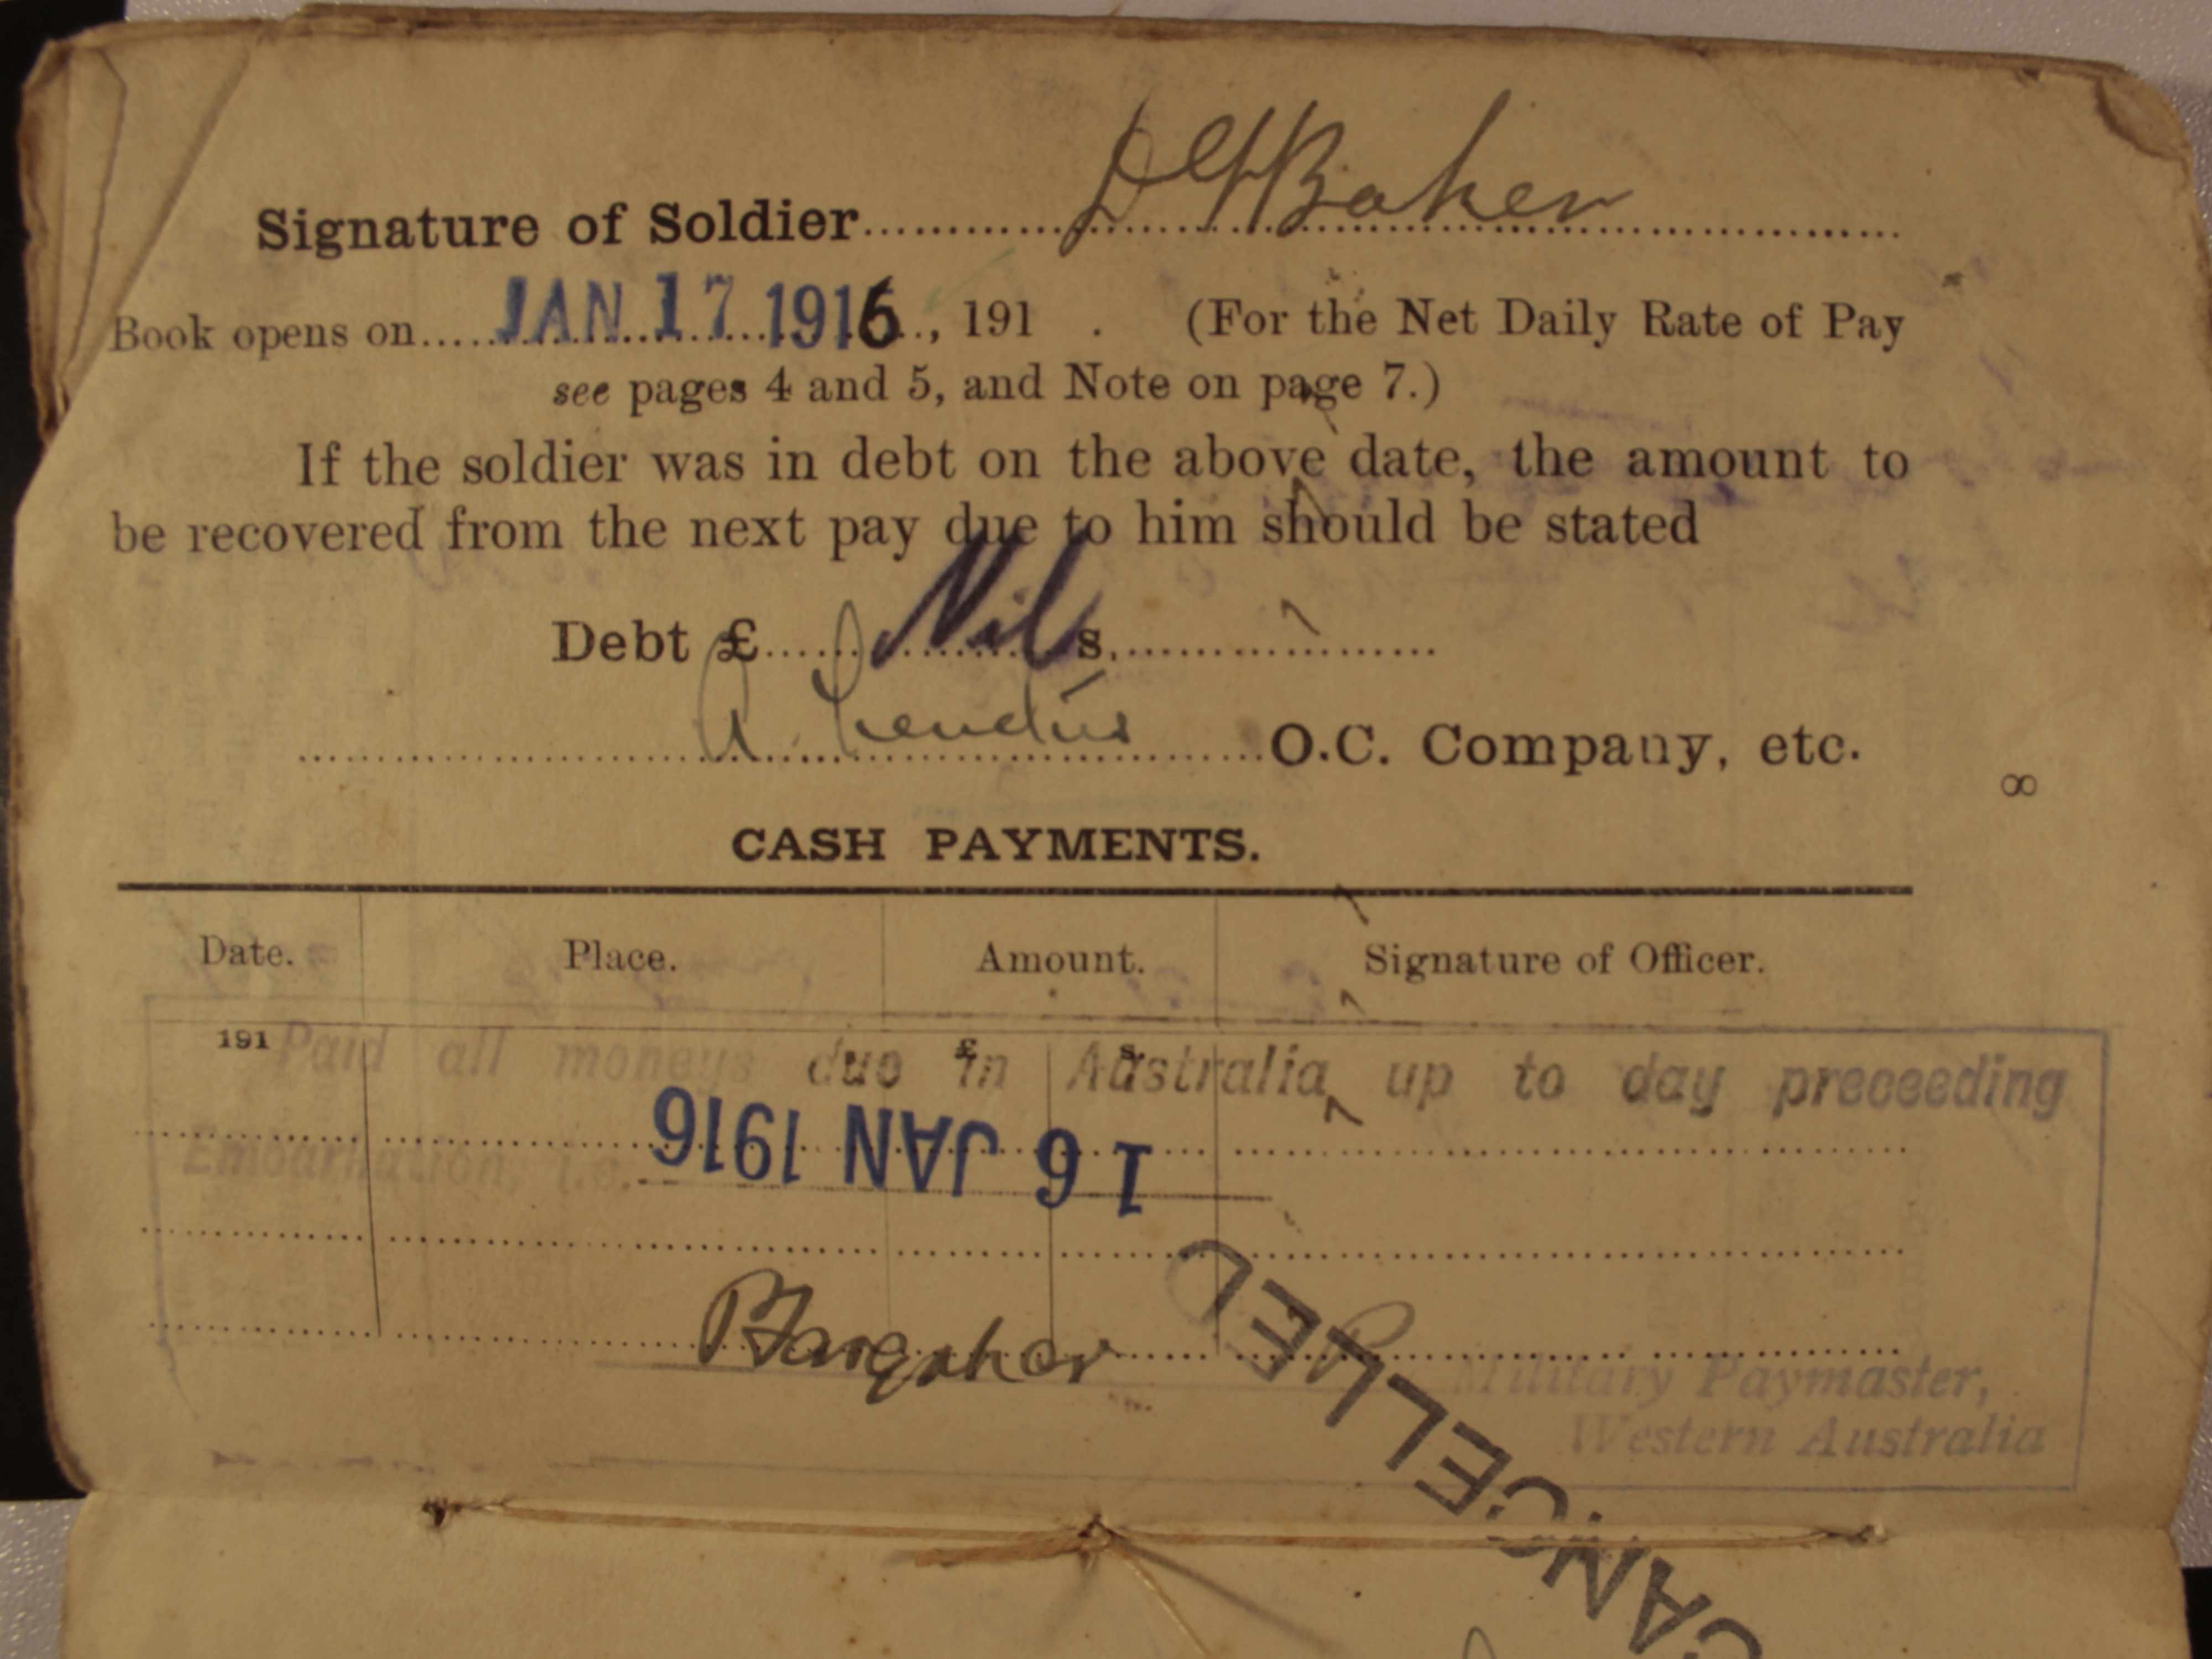 Signature of Soldier DGBaker
Book opens on JAN 17 1916, 191 . (For the Net Daily Rate of Pay
see pages 4 and 5, and Note on page 7.)
If the soldier was in debt on the above date, the amount to
be recovered from the next pay due to him should be stated
Debt £ Nil s.
A. O.C. Company, etc.
8
CASH PAYMENTS.
Date. Place. Amount. Signature of Officer.
191 £ s.
Paid all moneys due in Australia up to day preceeding
Embarkation, i.e. 16 JAN 1916
CANCELLED
Military Paymaster,
Western Australia